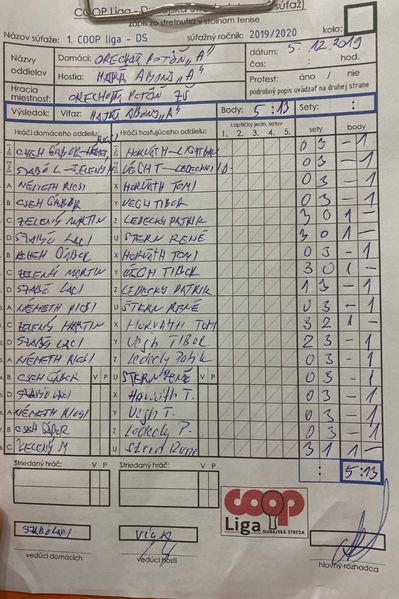 COOP Liga - D
zápis zo stretnutia v stolnom tenise
Názov súťaže: 1. COOP liga - DS súťažný ročník: 2019/2020 kolo:
Názvy oddielov Domáci: ORECHOVÁ POTÔŇ "A" dátum: 5. 12. 2019
Hostia: "A" čas: : hod.
Hracia miestnosť: ORECHOVÁ POTÔŇ ZŠ Protest: áno / nie
podrobný popis uvádzať na druhej strane
Výsledok: Víťaz: "A" Body: 5:13 Sety: :
Hráči domáceho oddielu: Hráči hosťujúceho oddielu: Loptičky jedn. setov sety body
1. 2. 3. 4. 5.
CSEH GÁBOR- HORVÁTH- 0 3 - 1
SZABÓ L- VÉGH T- 0 3 - 1
A NÉMETH RICSI X HORVÁTH TOMI 0 3 - 1
B CSEH GÁBOR Y VÉGH TIBOR 0 3 - 1
C ZELENÝ MARTIN Z LEDECKY PATRIK 3 0 1 -
D SZABÓ LACI U ŠTERN RENÉ 3 0 1 -
B CSEH GÁBOR X HORVÁTH TOMI 0 3 - 1
C ZELENÝ MARTIN Y VÉGH TIBOR 3 0 1 -
D SZABÓ LACI Z LEDECKY PATRIK 1 3 - 1
A NÉMETH RICSI U ŠTERN RENÉ 0 3 - 1
C ZELENÝ MARTIN X HORVÁTH TOMI 3 2 1 -
D SZABÓ LACI Y Végh TIBOR 2 3 - 1
A NÉMETH RICSI Z Ledecky Patrik 0 3 - 1
B CSEH GÁBOR V P U ŠTERN RENÉ V P 0 3 - 1
D SZABÓ LACI X Horváth T. 0 3 - 1
A NÉMETH RICSI Y Végh T. 0 3 - 1
B CSEH GÁBOR Z Ledecky P. 0 3 - 1
C ZELENÝ M U Štern René 3 1 1 -
Striedaný hráč: V P Striedaný hráč: V P : 5:13
COOP
Liga DUNAJSKÁ STREDA
SZABÓ LACI
vedúci domácich vedúci hostí hlavný rozhodca